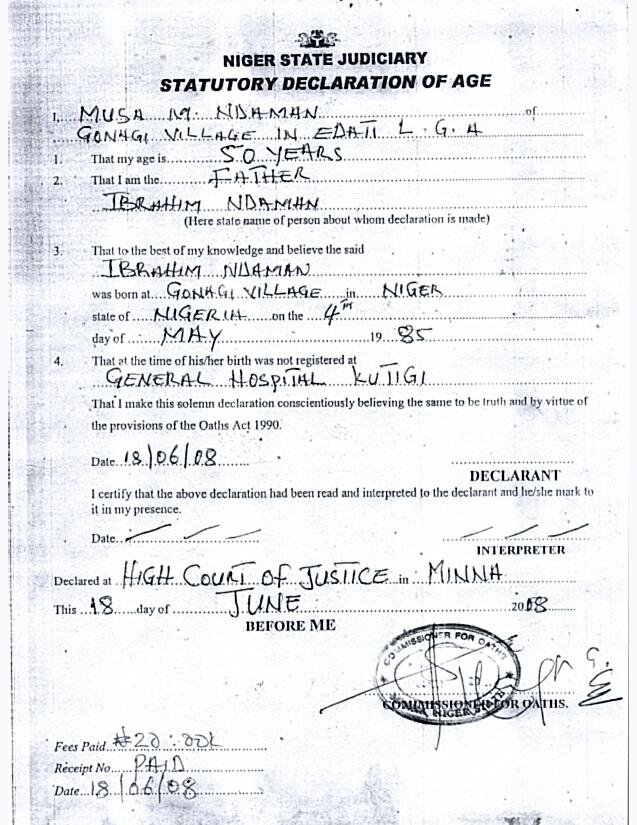 NIGER STATE JUDICIARY
STATUTORY DECLARATION OF AGE
I, MUSA M. NDAMAN of
GONAGI VILLAGE IN EDATI L.G.A
1. That my age is 50 YEARS
2. That I am the FATHER
IBRAHIM NDAMAN
(Here state name of person about whom declaration is made)
3. That to the best of my knowledge and believe the said
IBRAHIM NDAMAN
was born at GONAGI VILLAGE in NIGER
state of NIGERIA on the 4TH
day of MAY 19 85
4. That at the time of his/her birth was not registered at
GENERAL HOSPITAL KUTIGI
That I make this solemn declaration conscientiously believing the same to be truth and by virtue of
the provisions of the Oaths Act 1990.
Date 18/06/08
DECLARANT
I certify that the above declaration had been read and interpreted to the declarant and he/she mark to
it in my presence.
Date
INTERPRETER
Declared at HIGH COURT OF JUSTICE in MINNA
This 18 day of JUNE 2008
BEFORE ME
COMMISSIONER FOR OATHS
COMMISSIONER FOR OATHS.
Fees Paid #20:00k
Receipt No PAID
Date 18/06/08